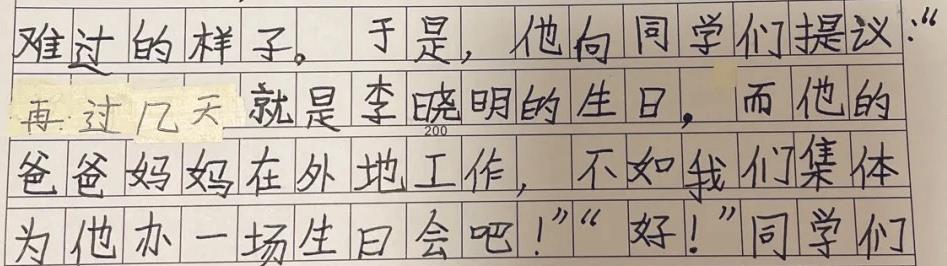 难过的样子。于是，他向同学们提议：“
再过几天就是李晓明的生日，而他的
200
爸爸妈妈在外地工作，不如我们集体
为他办一场生日会吧！”“好！”同学们